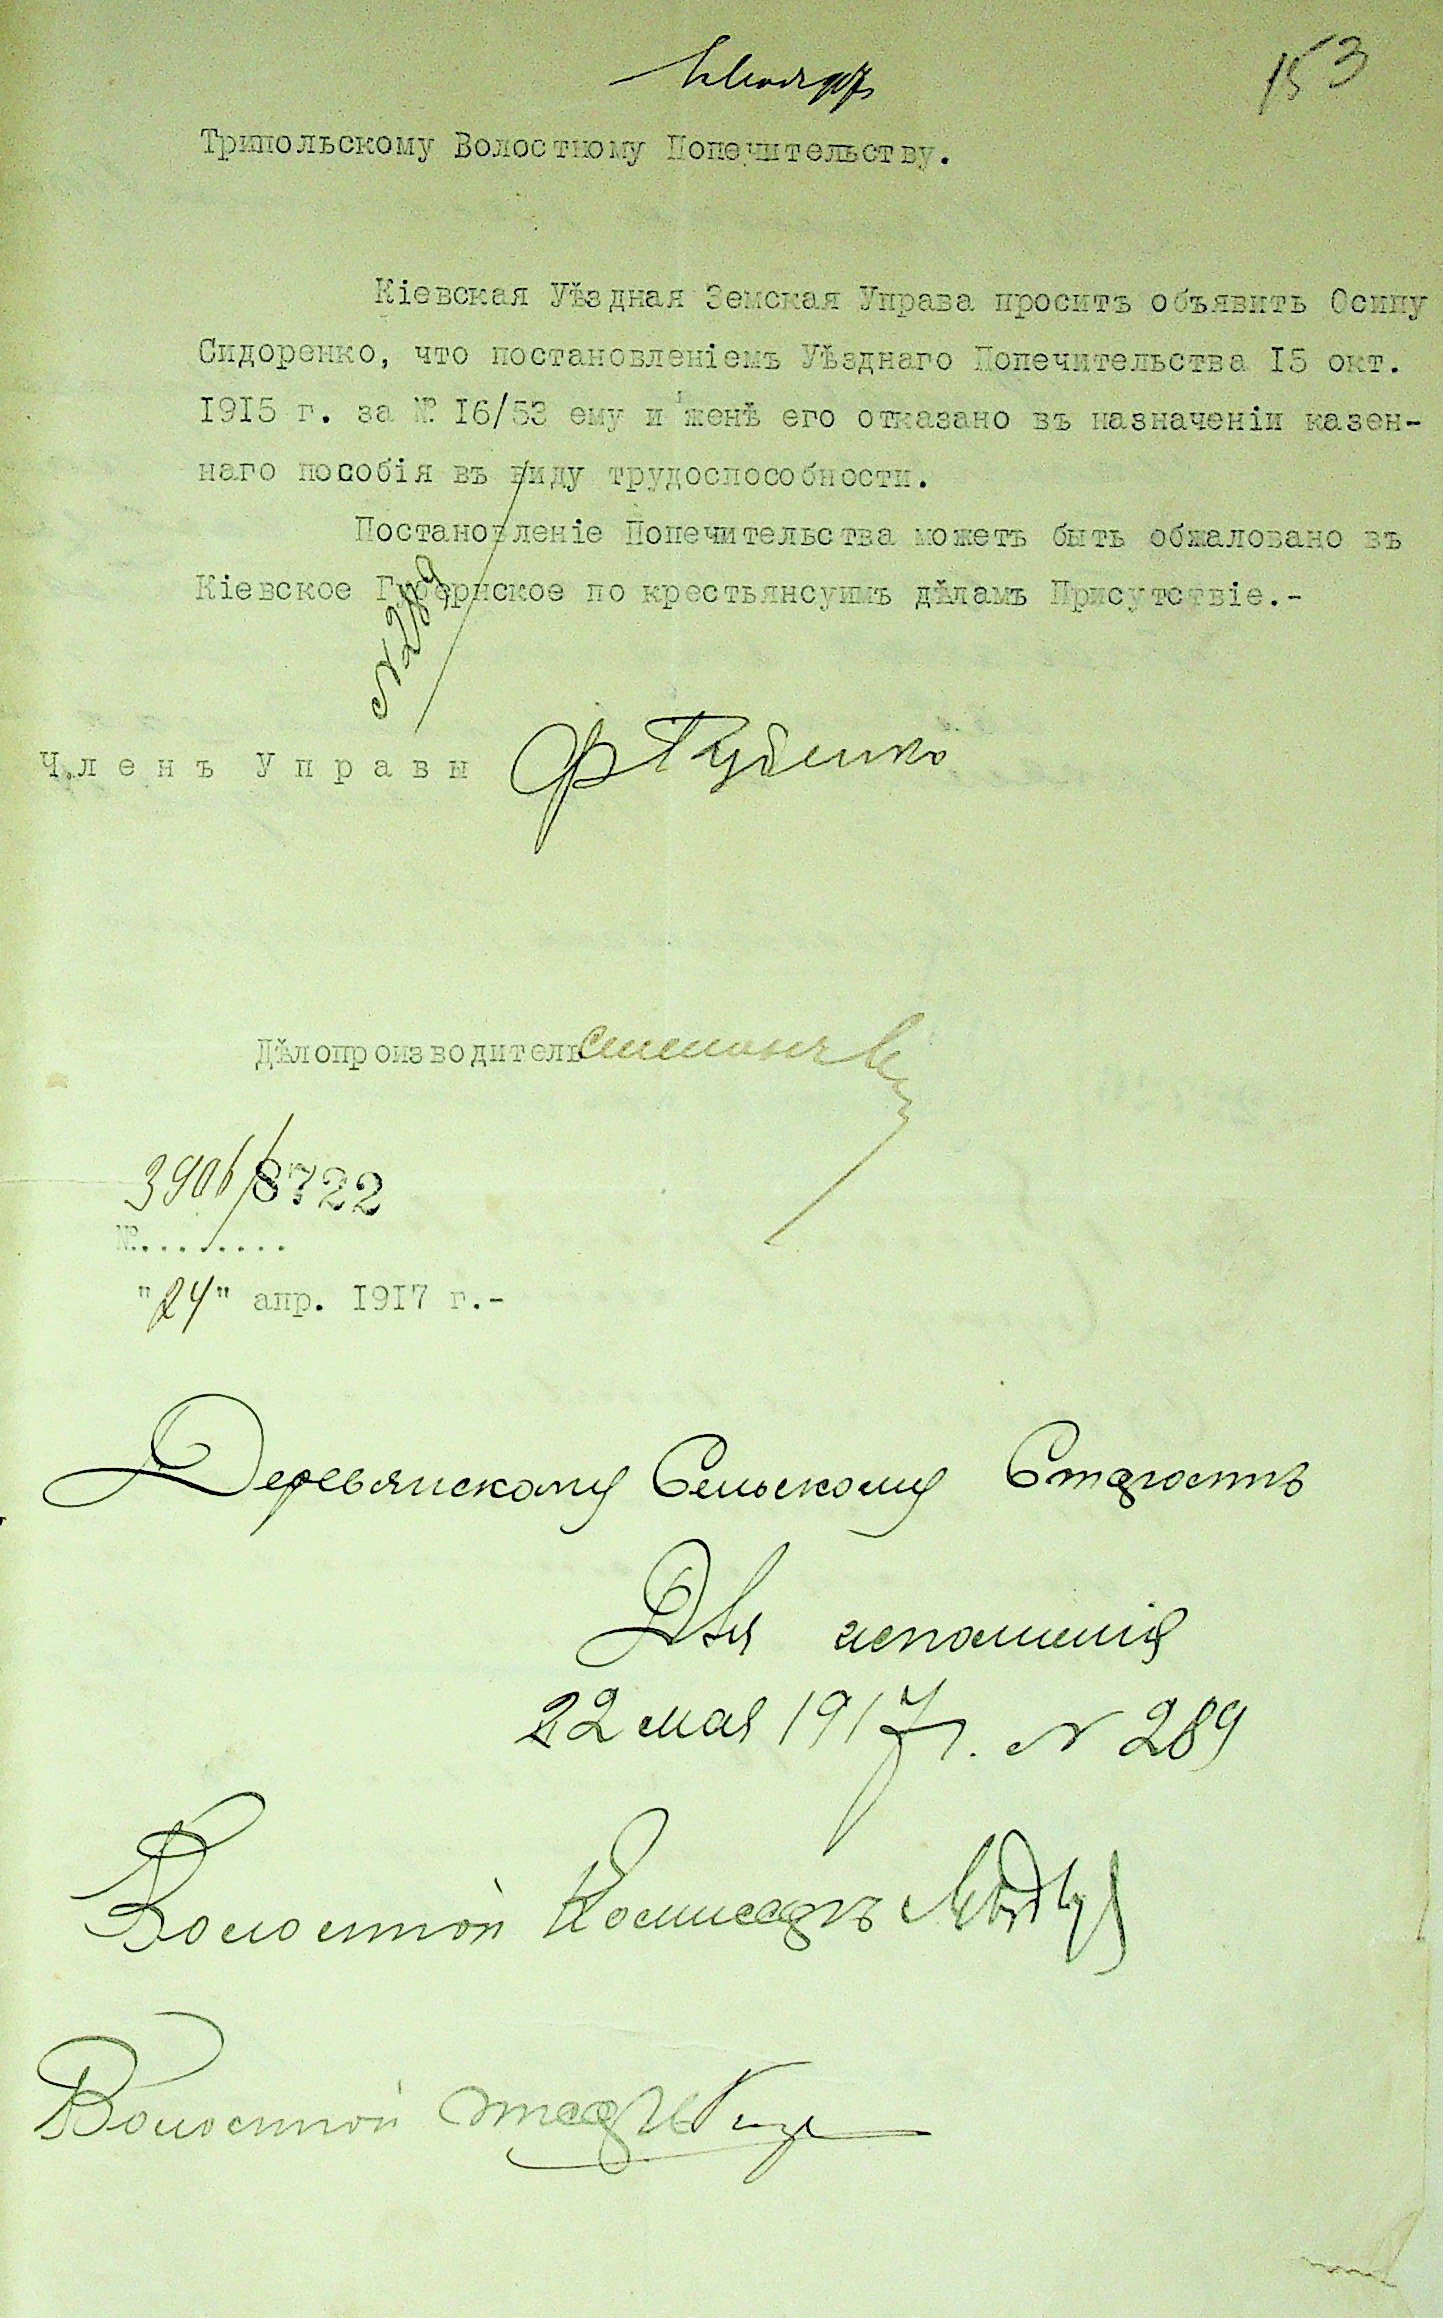 153
Трипольскому Волостному Попечительству.
Кіевская Уѣздная Земская Управа проситъ объявить Осипу
Сидоренко, что постановленіемъ Уѣзднаго Попечительства 15 окт.
1915 г. за № 16/53 ему и женѣ его отказано въ назначеніи казен-
наго пособія въ виду трудоспособности.
Постановленіе Попечительства можетъ быть обжаловано въ
Кіевское Губернское по крестьянсуимъ дѣламъ Присутствіе.-
N 289
Членъ Управы Ф Губенко
Дѣлопроизводитель
3906/8722
№.........
"24" апр. 1917 г.-
Деревянскому Сельскому Старостѣ
Для исполненія
22 мая 1917 г. N 289
Волостной Комиссаръ
Волостной писарь